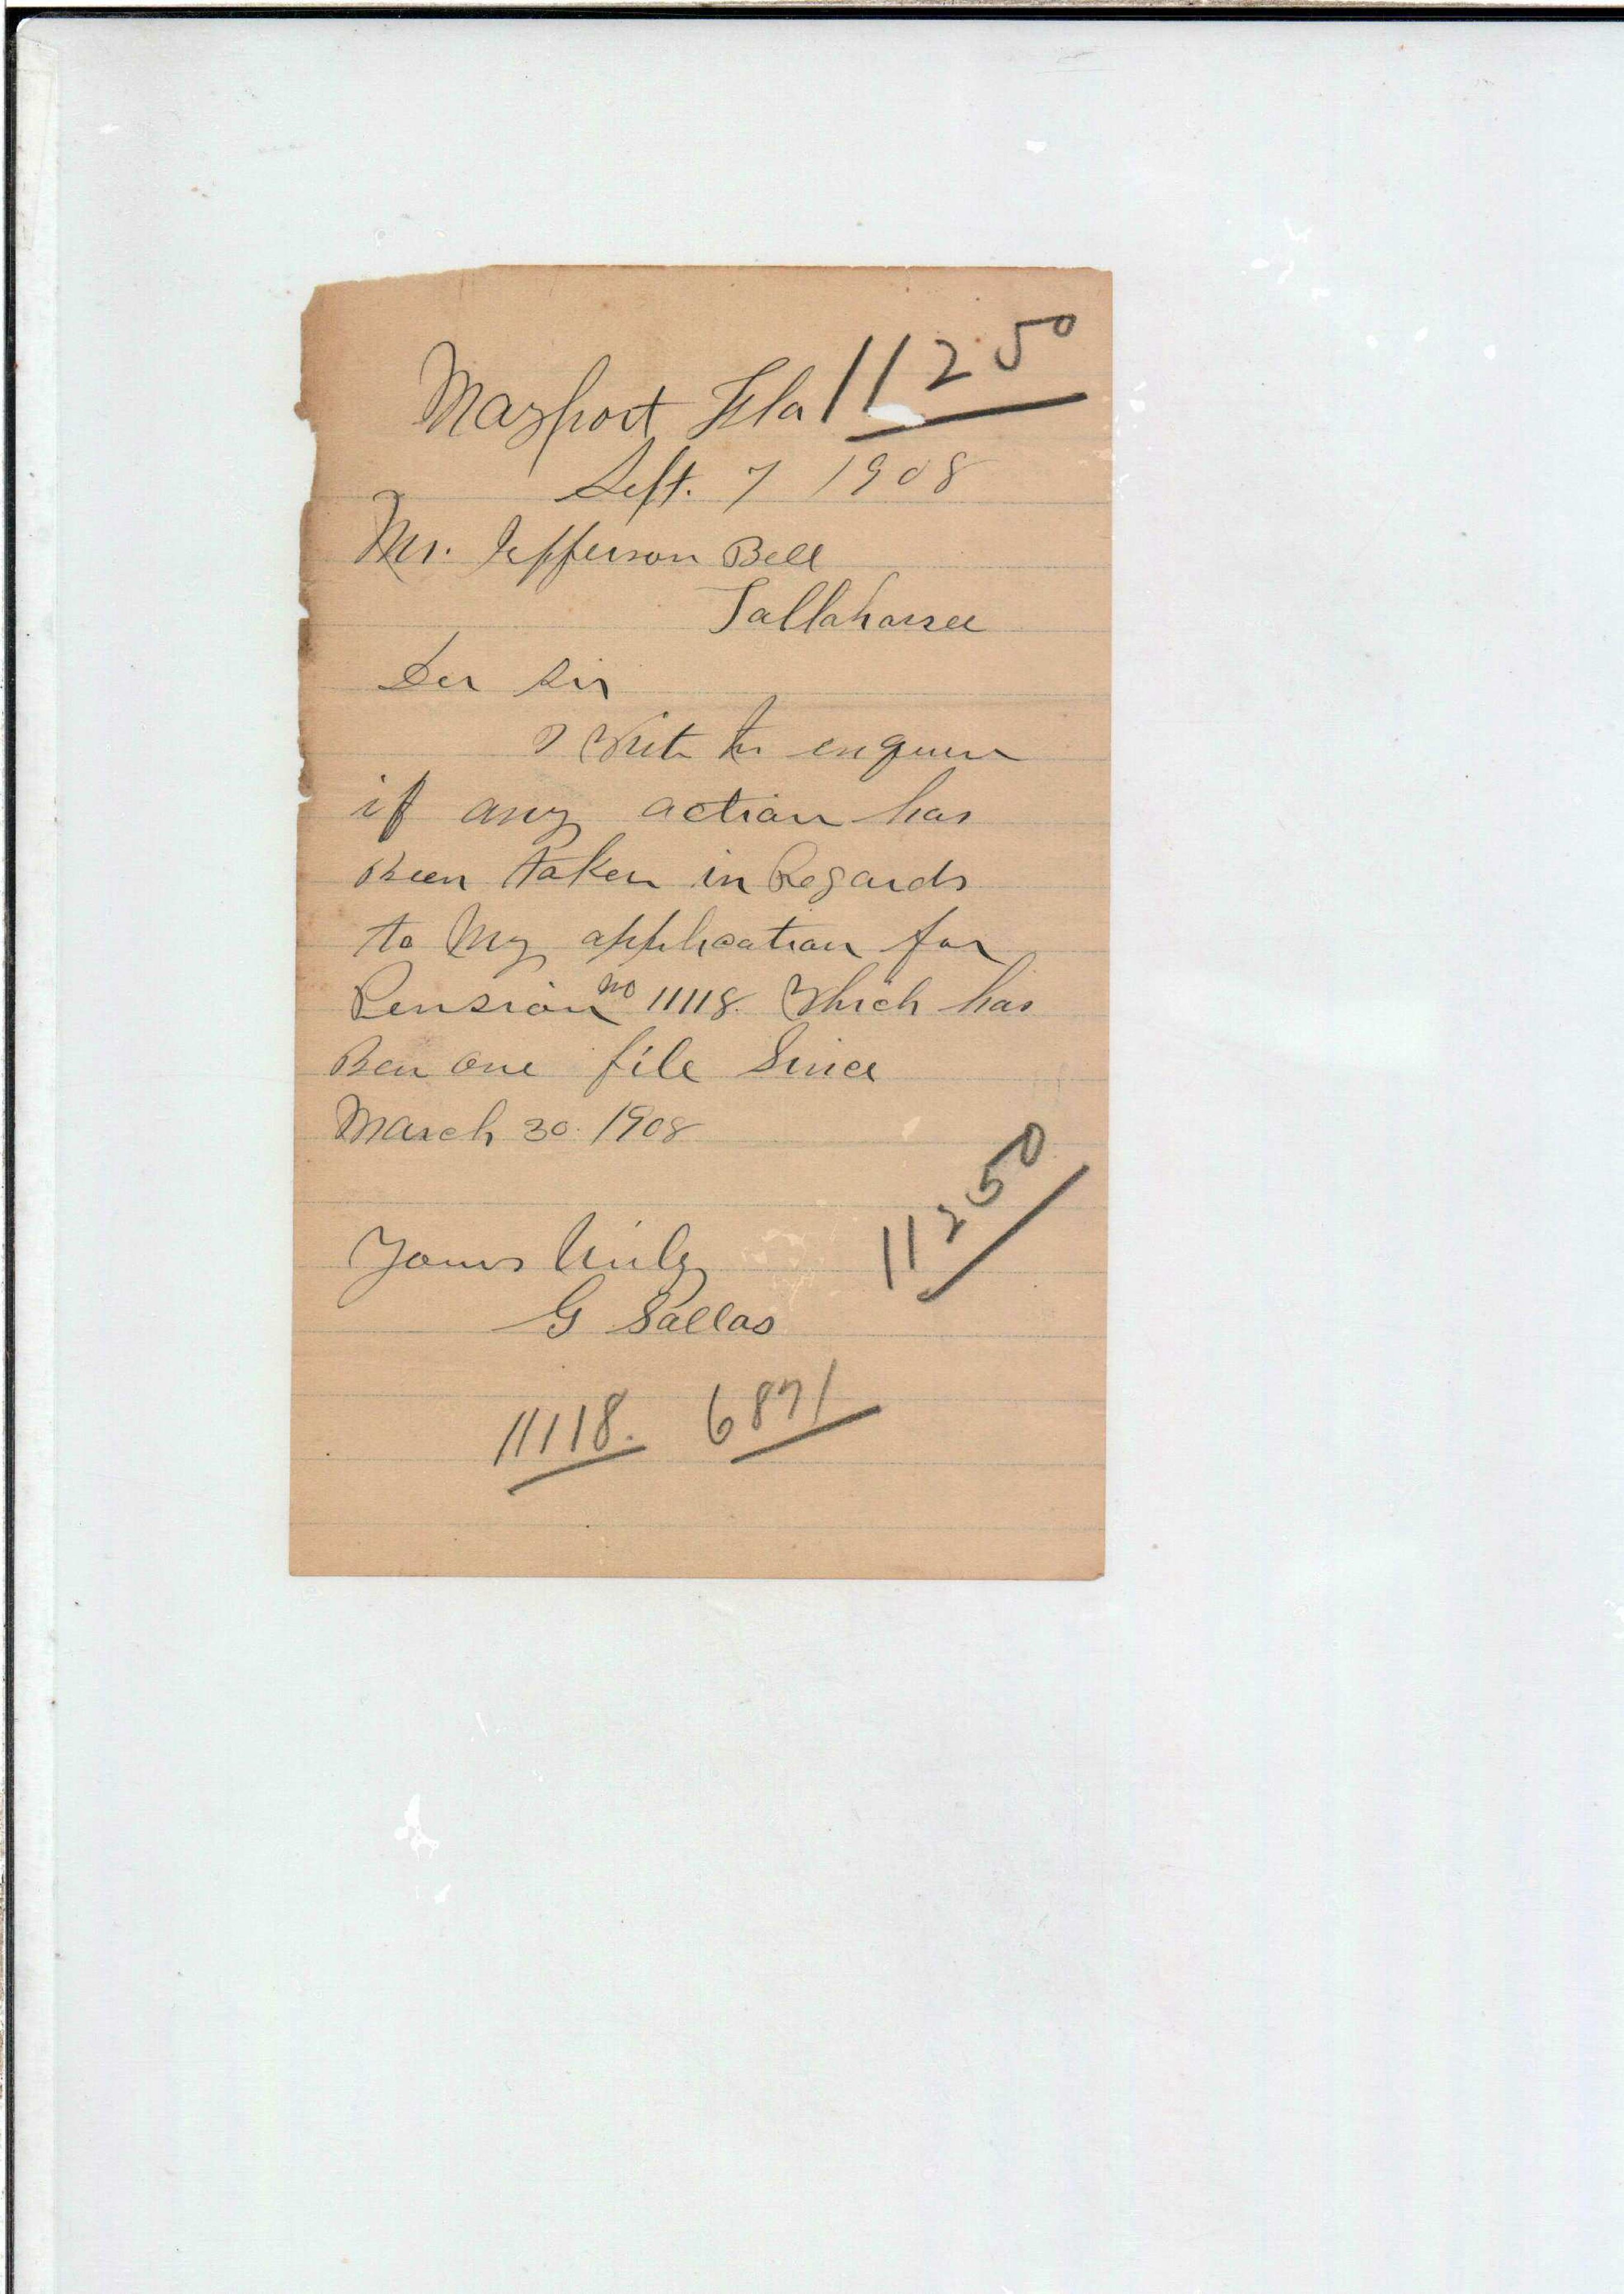 Mayport Fla 11250
Sept. 7 1908
Mr. Jefferson Bell
Tallahassee
Der Sir
I Write to enquire
if any action has
Been taken in Regards
to My application for
Pension no 11118. Which has
Ben one file Since
March 30. 1908
11250
Yours Truly
G Sallas
11118. 6871